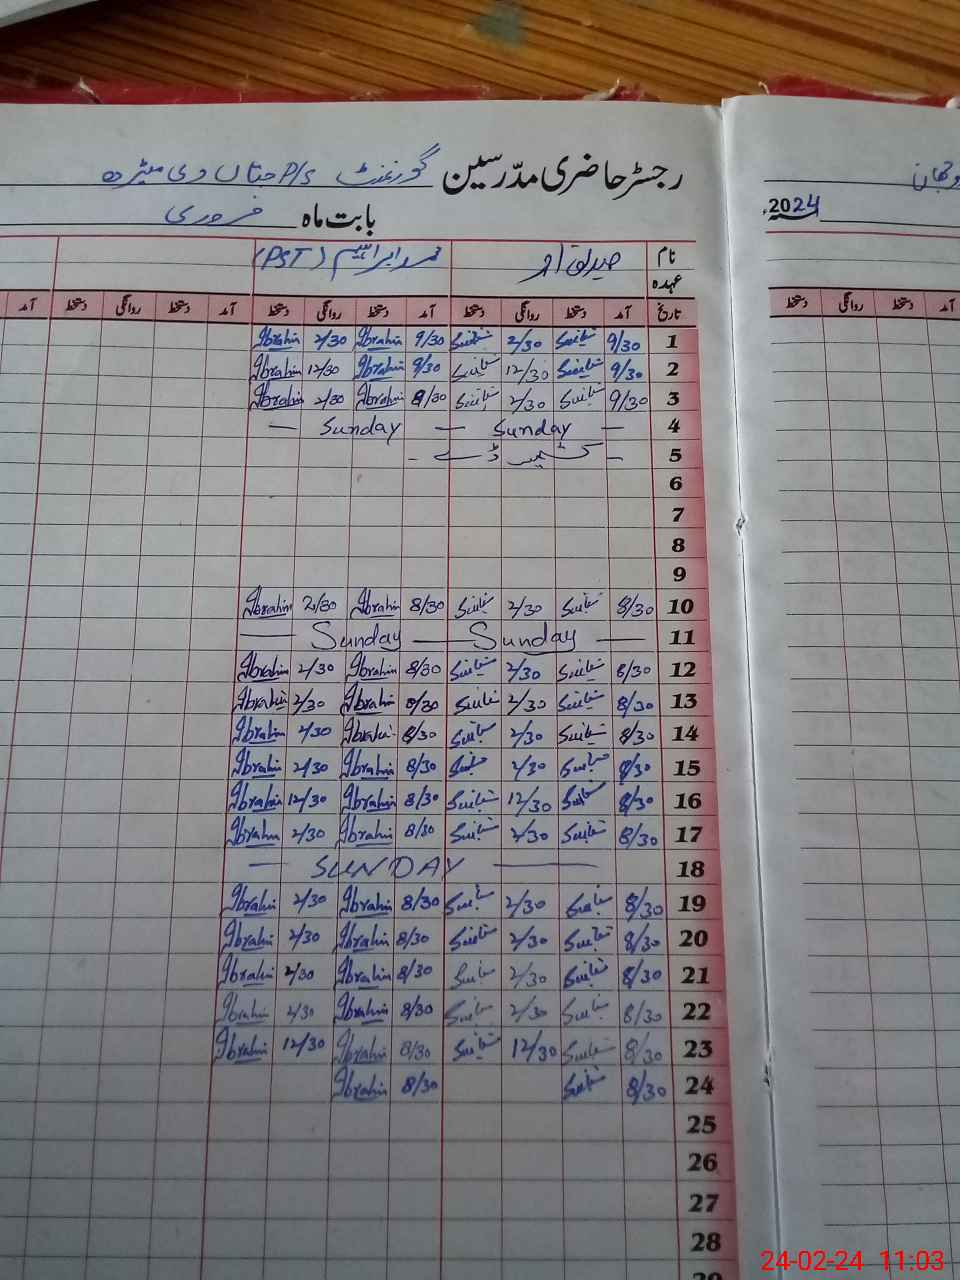 رجسٹر حاضری مدرسین گورنمنٹ P/S جتاں دی
بابت ماہ فروری
2024ء
نام صدیق احمد محمد ابراہیم (PST)
عہدہ
تاریخ آمد دستخط روانگی دستخط آمد دستخط روانگی دستخط آمد دستخط روانگی دستخط آمد
دستخط روانگی دستخط
1 9/30 2/30 9/30 Ibrahim 2/30 Ibrahim
2 9/30 12/30 9/30 Ibrahim 12/30 Ibrahim
3 9/30 2/30 8/30 Ibrahim 2/30 Ibrahim
4 — Sunday — Sunday —
5 - کشمیر ڈے -
6
7
8
9
10 8/30 2/30 8/30 Ibrahim 2/30 Ibrahim
11 — Sunday — Sunday —
12 8/30 2/30 8/30 Ibrahim 2/30 Ibrahim
13 8/30 2/30 8/30 Ibrahim 2/30 Ibrahim
14 8/30 2/30 8/30 Ibrahim 2/30 Ibrahim
15 8/30 2/30 8/30 Ibrahim 2/30 Ibrahim
16 8/30 12/30 8/30 Ibrahim 12/30 Ibrahim
17 8/30 2/30 8/30 Ibrahim 2/30 Ibrahim
18 — SUNDAY —
19 8/30 2/30 8/30 Ibrahim 2/30 Ibrahim
20 8/30 2/30 8/30 Ibrahim 2/30 Ibrahim
21 8/30 2/30 8/30 Ibrahim 2/30 Ibrahim
22 8/30 2/30 8/30 Ibrahim 2/30 Ibrahim
23 8/30 12/30 8/30 Ibrahim 12/30 Ibrahim
24 8/30 8/30 Ibrahim
25
26
27
28
29
24-02-24 11:03